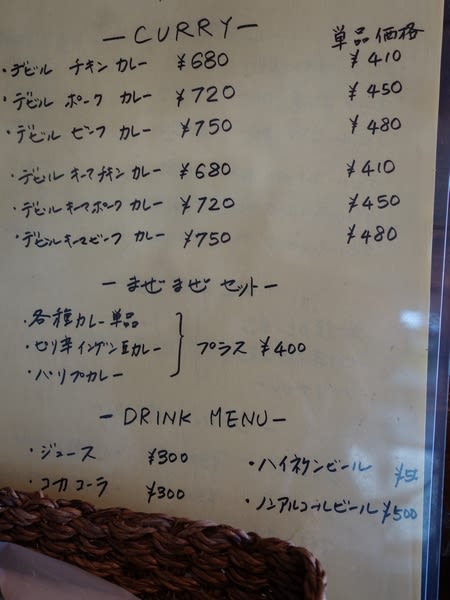 — CURRY —
単品価格
・デビル チキン カレー ¥680 ¥410
・デビル ポーク カレー ¥720 ¥450
・デビル ビーフ カレー ¥750 ¥480
・デビル キーマチキン カレー ¥680 ¥410
・デビルキーマポーク カレー ¥720 ¥450
・デビルキーマビーフ カレー ¥750 ¥480
— まぜまぜ セット —
・各種カレー単品
・セリ辛インゲン豆カレー プラス ¥400
・パリプカレー
— DRINK MENU —
・ジュース ¥300
・ハイネケンビール
・コカコーラ ¥300
・ノンアルコールビール ¥500